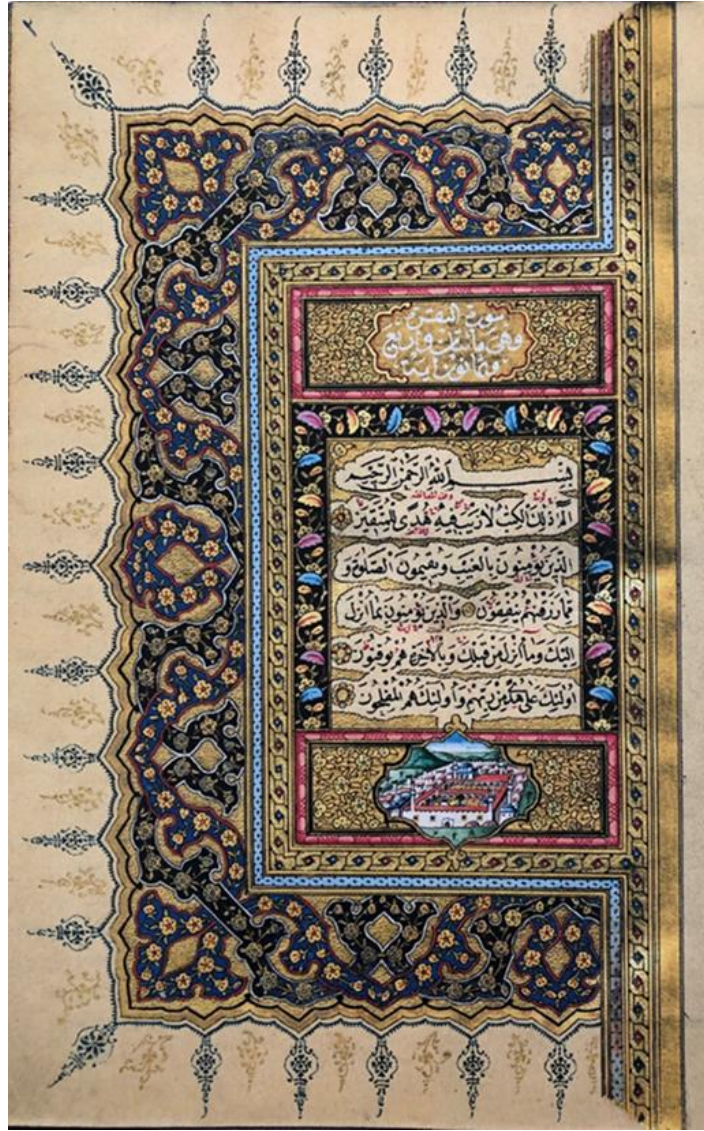 ٢
سورة البقرة
وهي مائتان وأربع
وثمانون آية
بِسْمِ اللهِ الرَّحْمٰنِ الرَّحِيمِ
الٓمٓ ذٰلِكَ الْكِتَابُ لَا رَيْبَ فِيهِ هُدًى لِلْمُتَّقِينَ
الَّذِينَ يُؤْمِنُونَ بِالْغَيْبِ وَيُقِيمُونَ الصَّلٰوةَ وَ
مِمَّا رَزَقْنٰهُمْ يُنْفِقُونَ وَالَّذِينَ يُؤْمِنُونَ بِمَٓا أُنْزِلَ
إِلَيْكَ وَمَٓا أُنْزِلَ مِنْ قَبْلِكَ وَبِالْاٰخِرَةِ هُمْ يُوقِنُونَ
أُولٰٓئِكَ عَلٰى هُدًى مِنْ رَبِّهِمْ وَأُولٰٓئِكَ هُمُ الْمُفْلِحُونَ